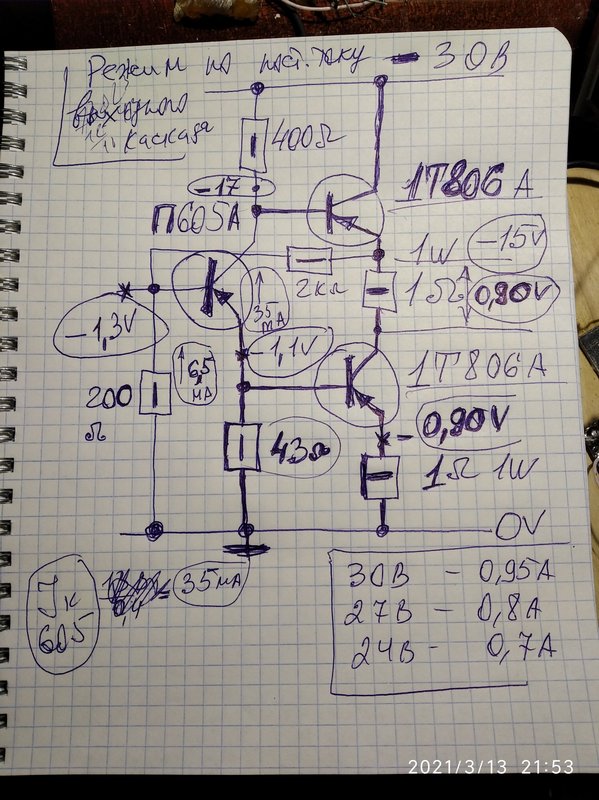 Режим по пост. току
– 30В
выходного
каскада
400Ω
-17
П605А
1Т806А
1W
-15V
2кΩ
1Ω
0,90V
35
мА
-1,3V
-1,1V
6,5
мА
1Т806А
200
Ω
- 0,90V
43Ω
1Ω 1W
0V
Jк
605
= 35мА
30В - 0,95А
27В - 0,8А
24В - 0,7А
2021/3/13 21:53